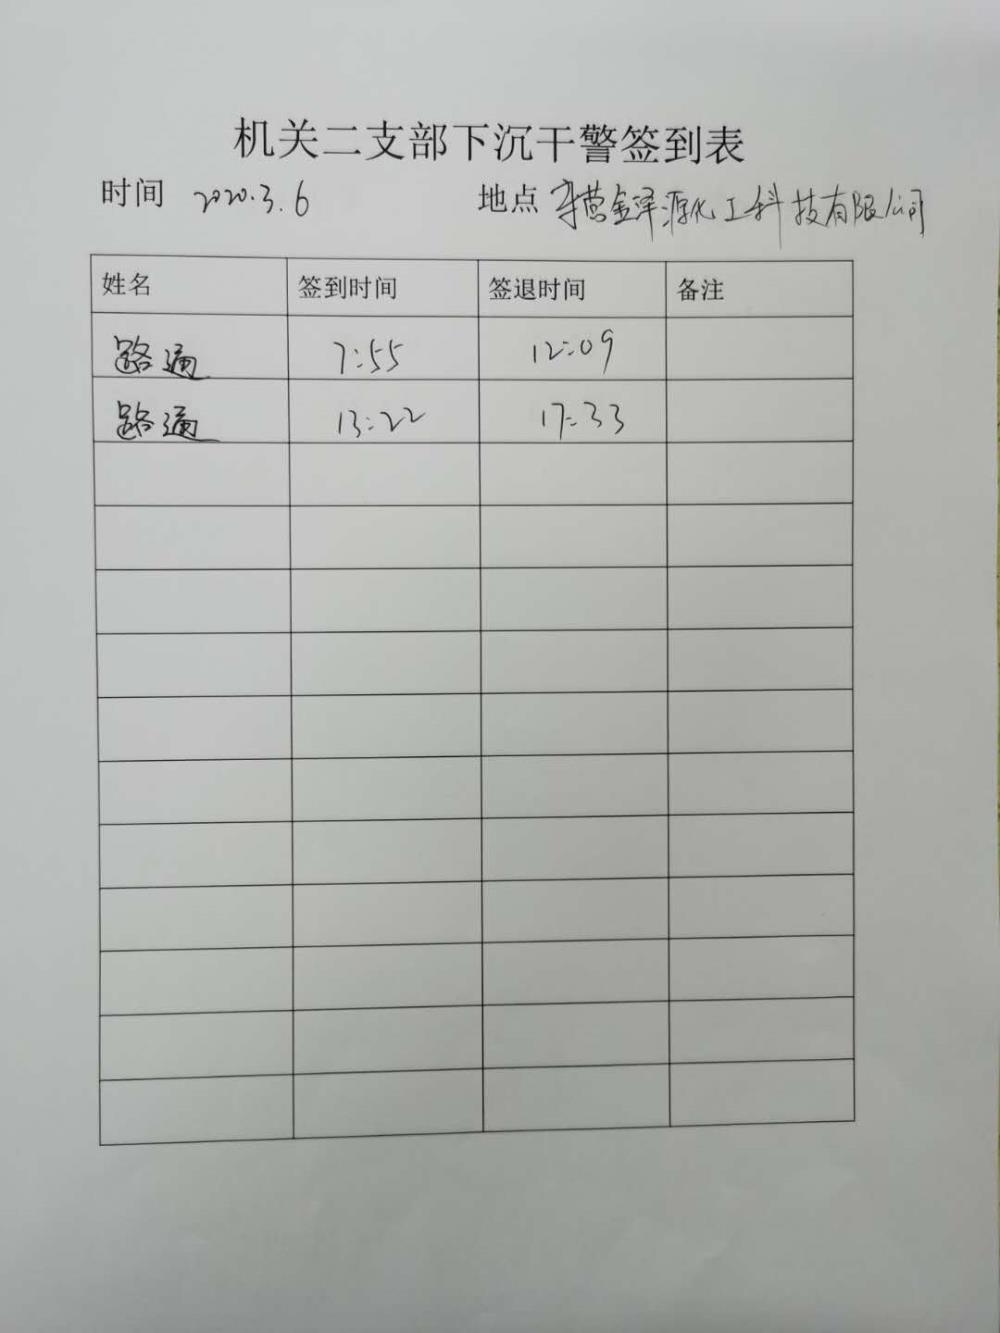 机关二支部下沉干警签到表
时间 2020.3.6 地点 东营金泽源化工科技有限公司
姓名 签到时间 签退时间 备注
路通 7:55 12:09
路通 13:22 17:33